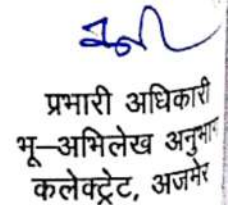 प्रभारी अधिकारी
भू–अभिलेख अनुभाग
कलेक्ट्रेट, अजमेर